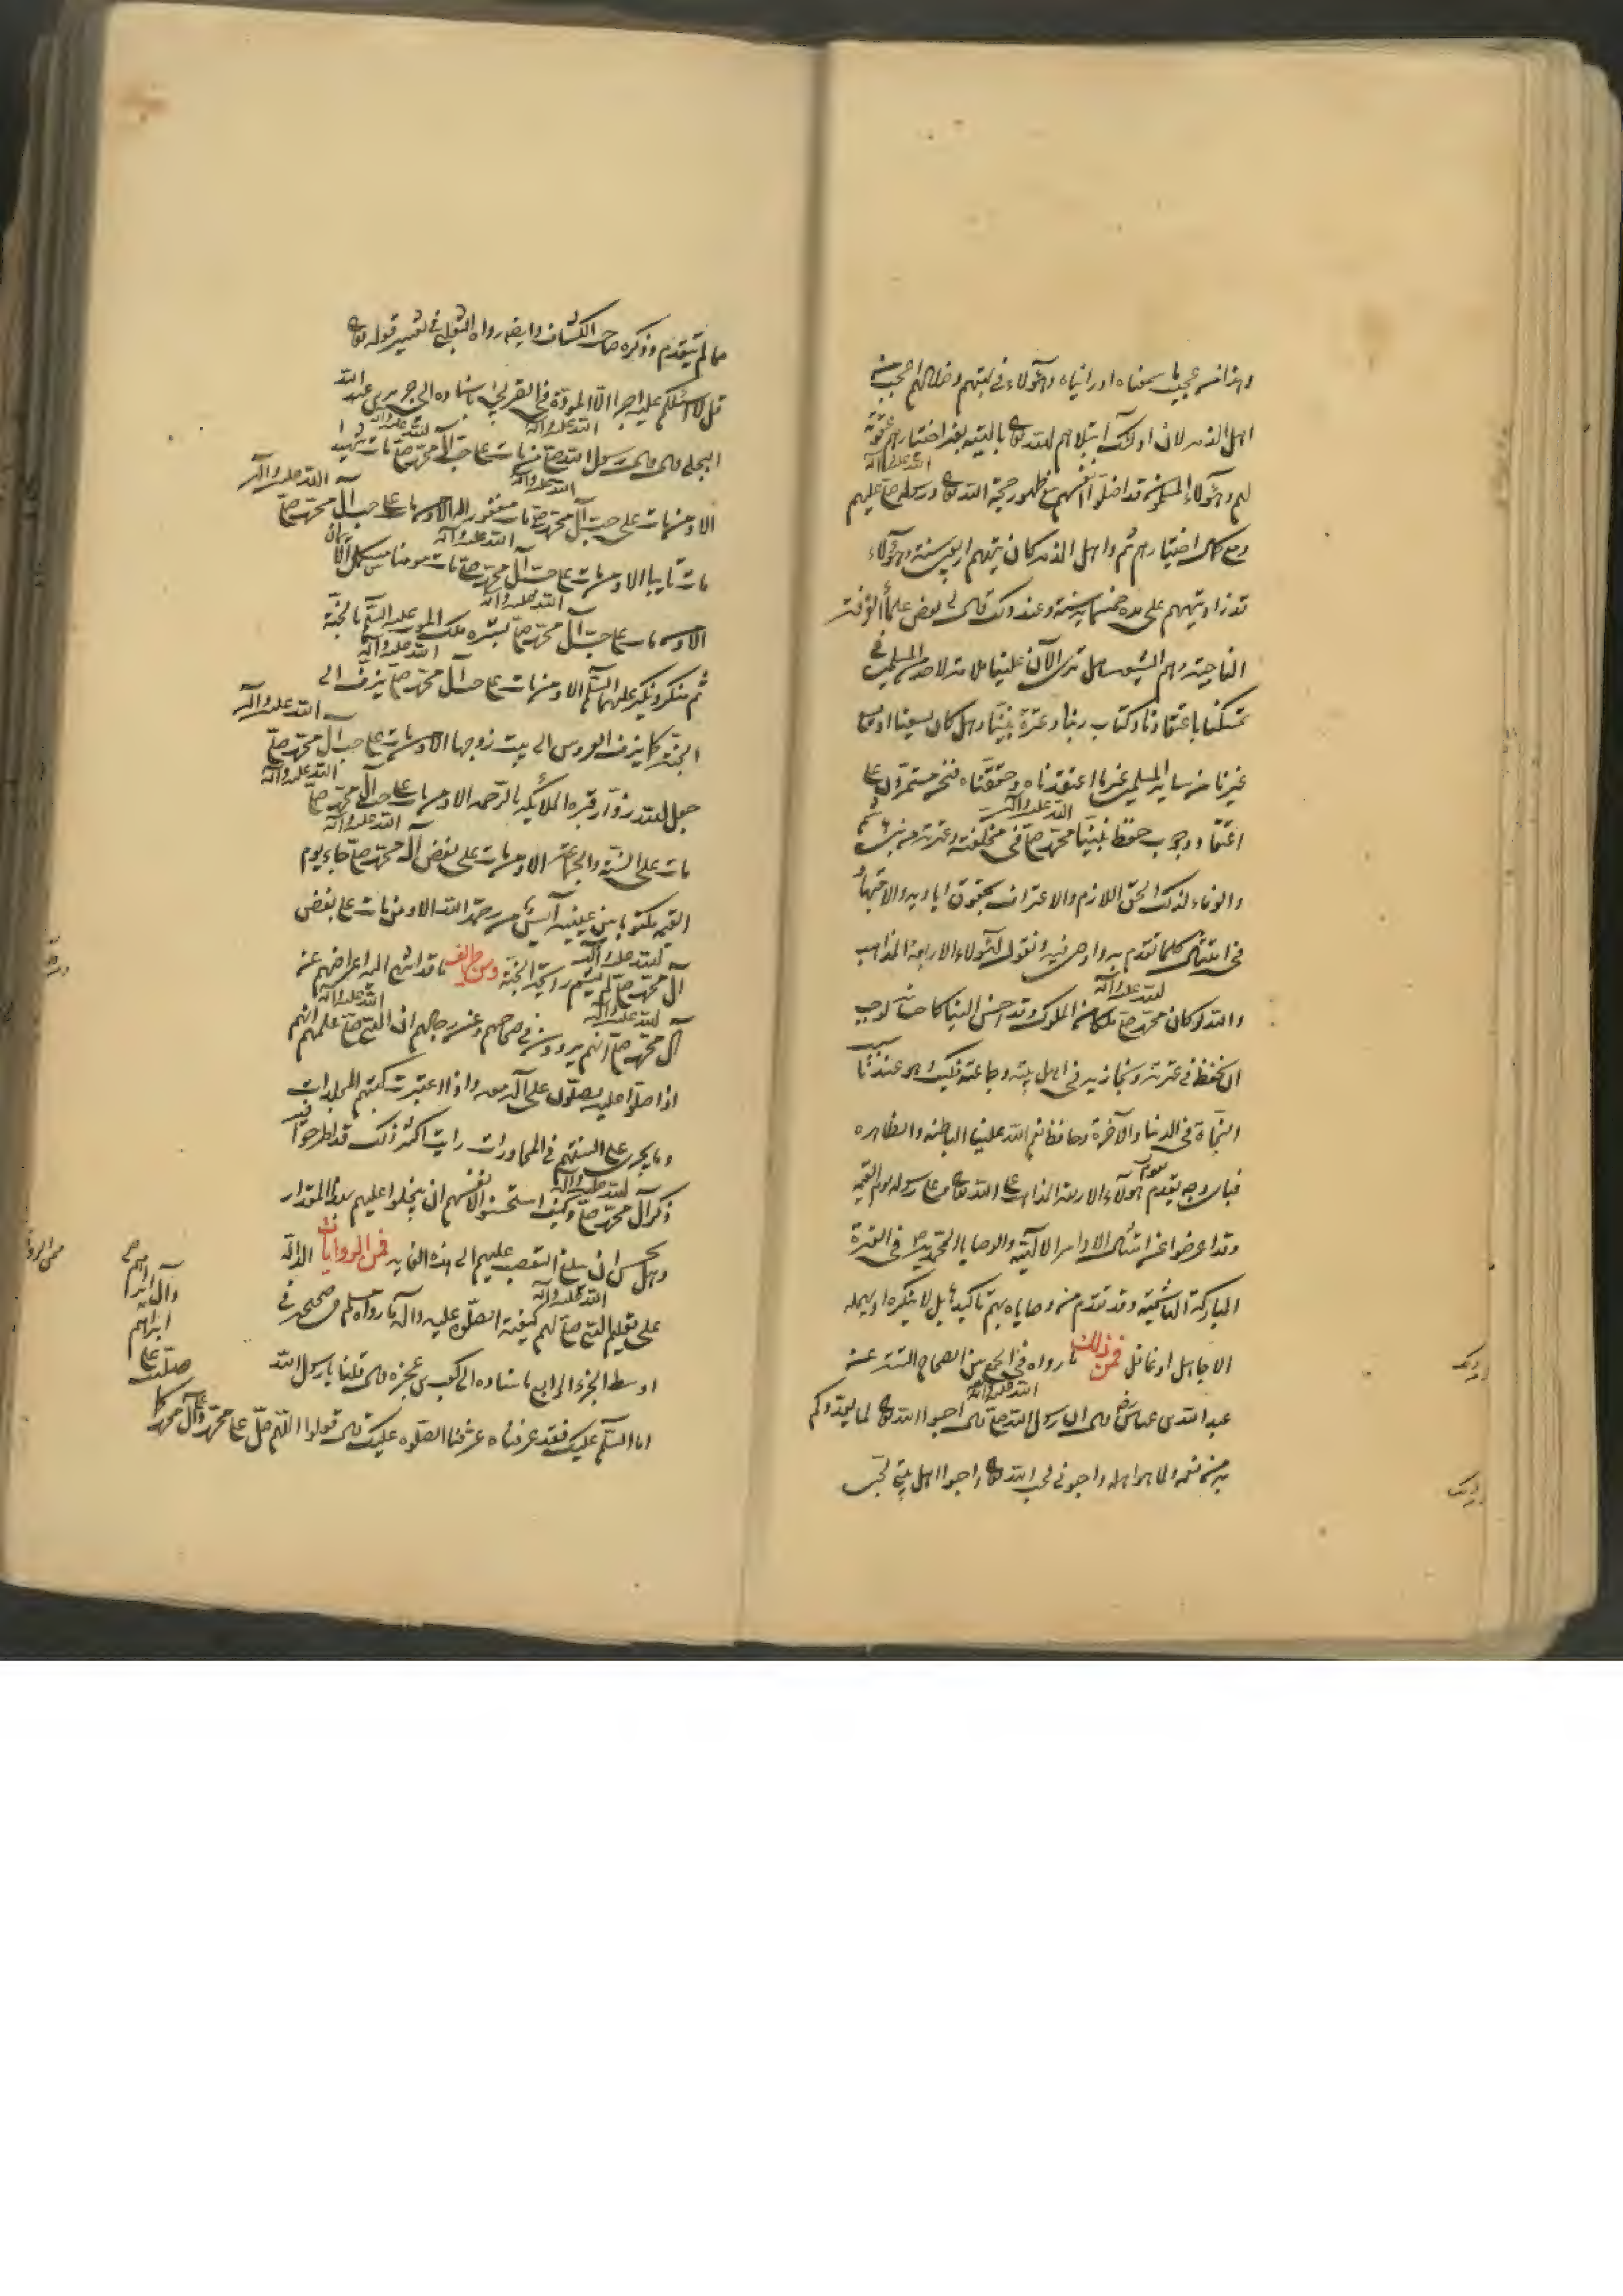 وهذا من عجيب ما سمعناه او رايناه وهؤلاء في تيههم وضلالهم اعجب من
اهل التيه لان اولئك ابتلاهم الله تعالى بالتيه بغير اختيارهم عقوبة
لهم وهؤلاء المسلمون قد اضلوا انفسهم مع ظهور حجة الله تعالى ورسوله صلى الله عليه وآله عليهم
ومع كمال اختيارهم ثم واهل التيه كان تيههم اربعين سنة وهؤلاء
قد زاد تيههم على مدة خمسمائة سنة وعند ذلك قال لي بعض علماء الفرقة
الناجية وهم الشيعة هل ترى الآن علينا ملامة لاحد من المسلمين في
تمسكنا باعتقادنا وكتاب ربنا وعترة نبينا وهل كان يسعنا او يسع
غيرنا من ساير المسلمين غير ما اعتقدناه وحققناه فنحن مستمرون على
اعتقاد وجوب حفظ نبينا محمد صلى الله عليه وآله في مخلفيه وعترته من بني هاشم
والوفاء لذلك الحق اللازم والاعتراف بحقوق اياديه والاجتهاد
في امتثال كلما تقدم به واوصى فيه ونقول لهؤلاء الاربعة المذاهب
والله لو كان محمد صلى الله عليه وآله ملكا من الملوك وقد احسن الينا كاحسانه لوجب
ان نحفظه في عترته ونجازيه في اهل بيته وجماعته فكيف وهو عندنا سبب
النجاة في الدنيا والآخرة وحافظ نعم الله علينا الباطنة والظاهره
فباي وجه يقدم هؤلاء الاربعة المذاهب على الله تعالى وعلى رسوله يوم القيمة
وقد اعرضوا عن امتثال الاوامر الالهية والوصايا المحمدية في العترة
المباركة الهاشمية وقد تقدم من وصاياه بهم تاكيد هايل لا ينكره او يهمله
الا جاهل او غافل فمن ذلك ما رواه في الجمع بين الصحاح الستة عن
عبد الله بن عباس رض قال ان رسول الله صلى الله عليه وآله قال احبوا الله تعالى لما يغذوكم
به من نعمه ولما هو اهله واحبوني لحب الله تعالى واحبوا اهل بيتي لحبي
مما لم يتقدم وذكره صاحب الكشاف وايضا رواه الثعلبي في تفسير قوله تعالى
قل لا اسئلكم عليه اجرا الا المودة في القربى باسناده الى جرير بن عبد الله
البجلي قال قال رسول الله صلى الله عليه وآله من مات على حب آل محمد صلى الله عليه وآله مات شهيدا
الا ومن مات على حب آل محمد صلى الله عليه وآله مات مغفورا له الا ومن مات على حب آل محمد صلى الله عليه وآله
مات تايبا الا ومن مات على حب آل محمد صلى الله عليه وآله مات مومنا مستكمل الايمان
الا ومن مات على حب آل محمد صلى الله عليه وآله بشره ملك الموت عليه السلم بالجنة
ثم منكر ونكير عليهما السلم الا ومن مات على حب آل محمد صلى الله عليه وآله يزف الى
الجنة كما يزف العروس الى بيت زوجها الا ومن مات على حب آل محمد صلى الله عليه وآله
جعل الله زوار قبره الملائكة بالرحمة الا ومن مات على حب آل محمد صلى الله عليه وآله
مات على السنة والجماعة الا ومن مات على بغض آل محمد صلى الله عليه وآله جاء يوم
القيمة مكتوبا بين عينيه آيس من رحمة الله الا ومن مات على بغض
آل محمد صلى الله عليه وآله لم يشم رايحة الجنة ومن طرايف ما قد انتهى اليه اعراضهم عن
آل محمد صلى الله عليه وآله انهم يروون في صحاحهم وعن رجالهم ان النبي صلى الله عليه وآله علمهم انهم
اذا صلوا عليه يصلون على آله معه واذا اعتبرت كتبهم المجلدات
وما يجري على السنتهم في المحاورات رايت اكثر ذلك قد اطرحوا فيه
ذكر آل محمد صلى الله عليه وآله وكيف استحسنوا لانفسهم ان يبخلوا عليهم بهذا المقدار
وهل حسن ان يبلغ التعصب عليهم الى هذه الغاية فمن الروايات الدالة
على تعليم النبي صلى الله عليه وآله لهم كيفية الصلوة عليه وآله ما رواه مسلم في صحيحه في
اوسط الجزء الرابع باسناده الى كعب بن عجزه قال قلنا يا رسول الله
اما السلم عليك فقد عرفناه عرفنا الصلوه عليك قال قولوا اللهم صل على محمد وعلى آل محمد كما
صليت على
ابراهيم
وآل ابراهيم